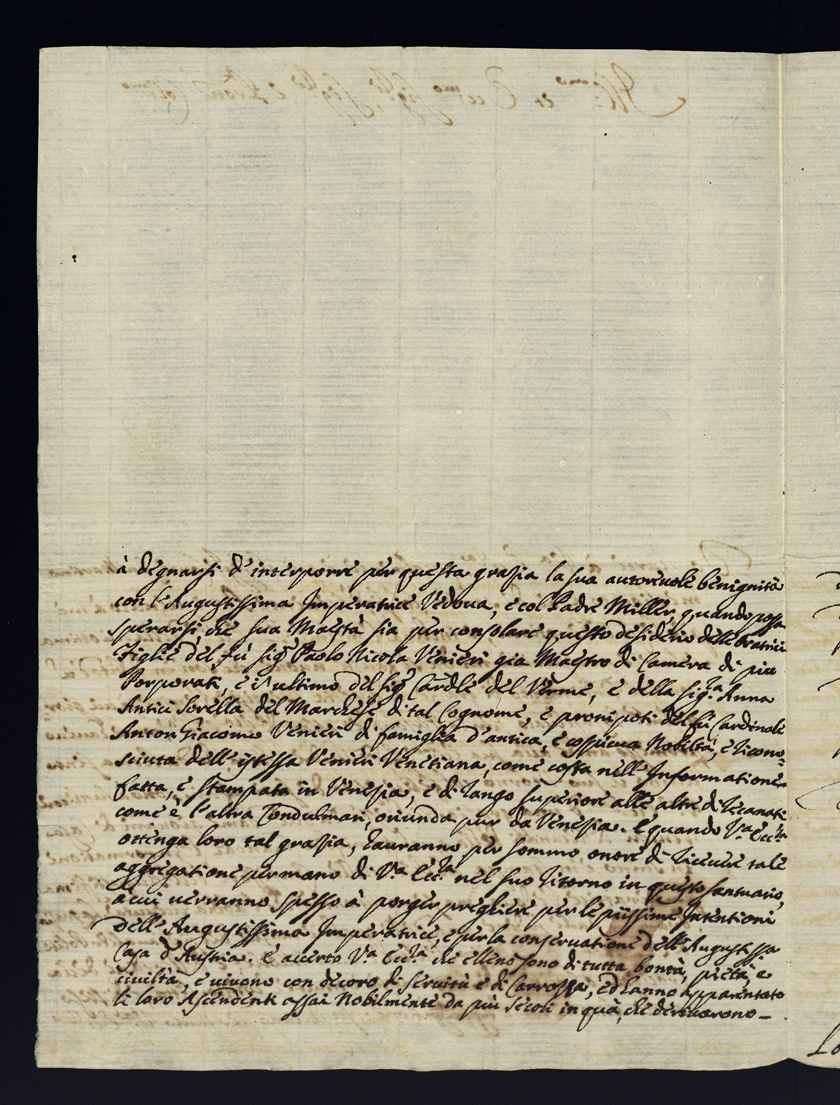 à degnarsi d'interporre per questa grazia la sua autoreuole benignità
con l'Augustissima Imperatrice Vedova, e col Padre Miller quando possa
sperarsi, che sua Maestà sia per consolare questo desiderio delle
Figlie del fù sig.r Paolo Nicola Venieri gia Maestro di Camera di piu
Porporati, e l'ultimo del sig.r Card.le del Verme, e della sig.ra Anna
Antici sorella del Marchese di tal Cognome, e pronipoti del fù Cardinale
Anton Giacomo Venieri di famiglia d'antica, e cospicua Nobiltà, e ricono-
sciuta dell'istessa Venieri Venetiana, come costa nell'Informatione
fatta, e stampata in Venezia, e di rango superiore alle altre di Recanati
come è l'altra Tondulmari, oriunda pur da Venezia. E quando V.a Ecc.za
ottenga loro tal grazia, hauranno per sommo onore di riceuere tale
aggregatione per mano di V.a Ecc.za nel suo ritorno in questo santuario,
à cui uerranno spesso à porger preghiere per le piissime Intentioni
dell'Augustissima Imperatrice, e per la conseruatione dell'Augustissa
Casa d'Austria. E accerto V.a Ecc.za che elleno sono di tutta bontà, pietà, e
ciuiltà, e uiuono con decoro di seruitù e di Carrozza, ed hanno apparentato
li loro Ascendenti assai Nobilmente da più secoli in quà, che deriuarono